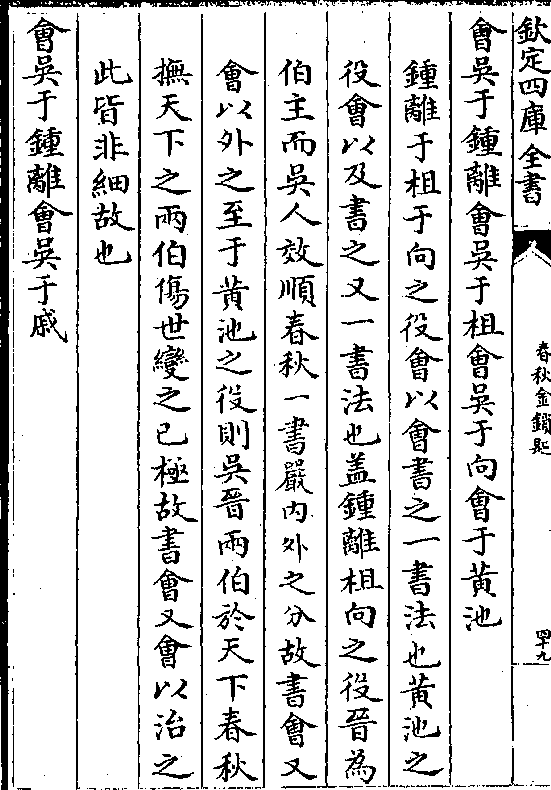 欽定四庫全書
春秋金鎖匙
四十九
會吳于鍾離會吳于柤會吳于向會于黃池
鍾離于柤于向之役會以會書之一書法也黃池之
役會以及書之又一書法也盖鍾離柤向之役晉為
伯主而吳人效順春秋一書嚴内外之分故書會又
會以外之至于黃池之役則吳晉兩伯於天下春秋
撫天下之兩伯傷世變之已極故書會又會以治之
此皆非細故也
會吳于鍾離會吳于戚